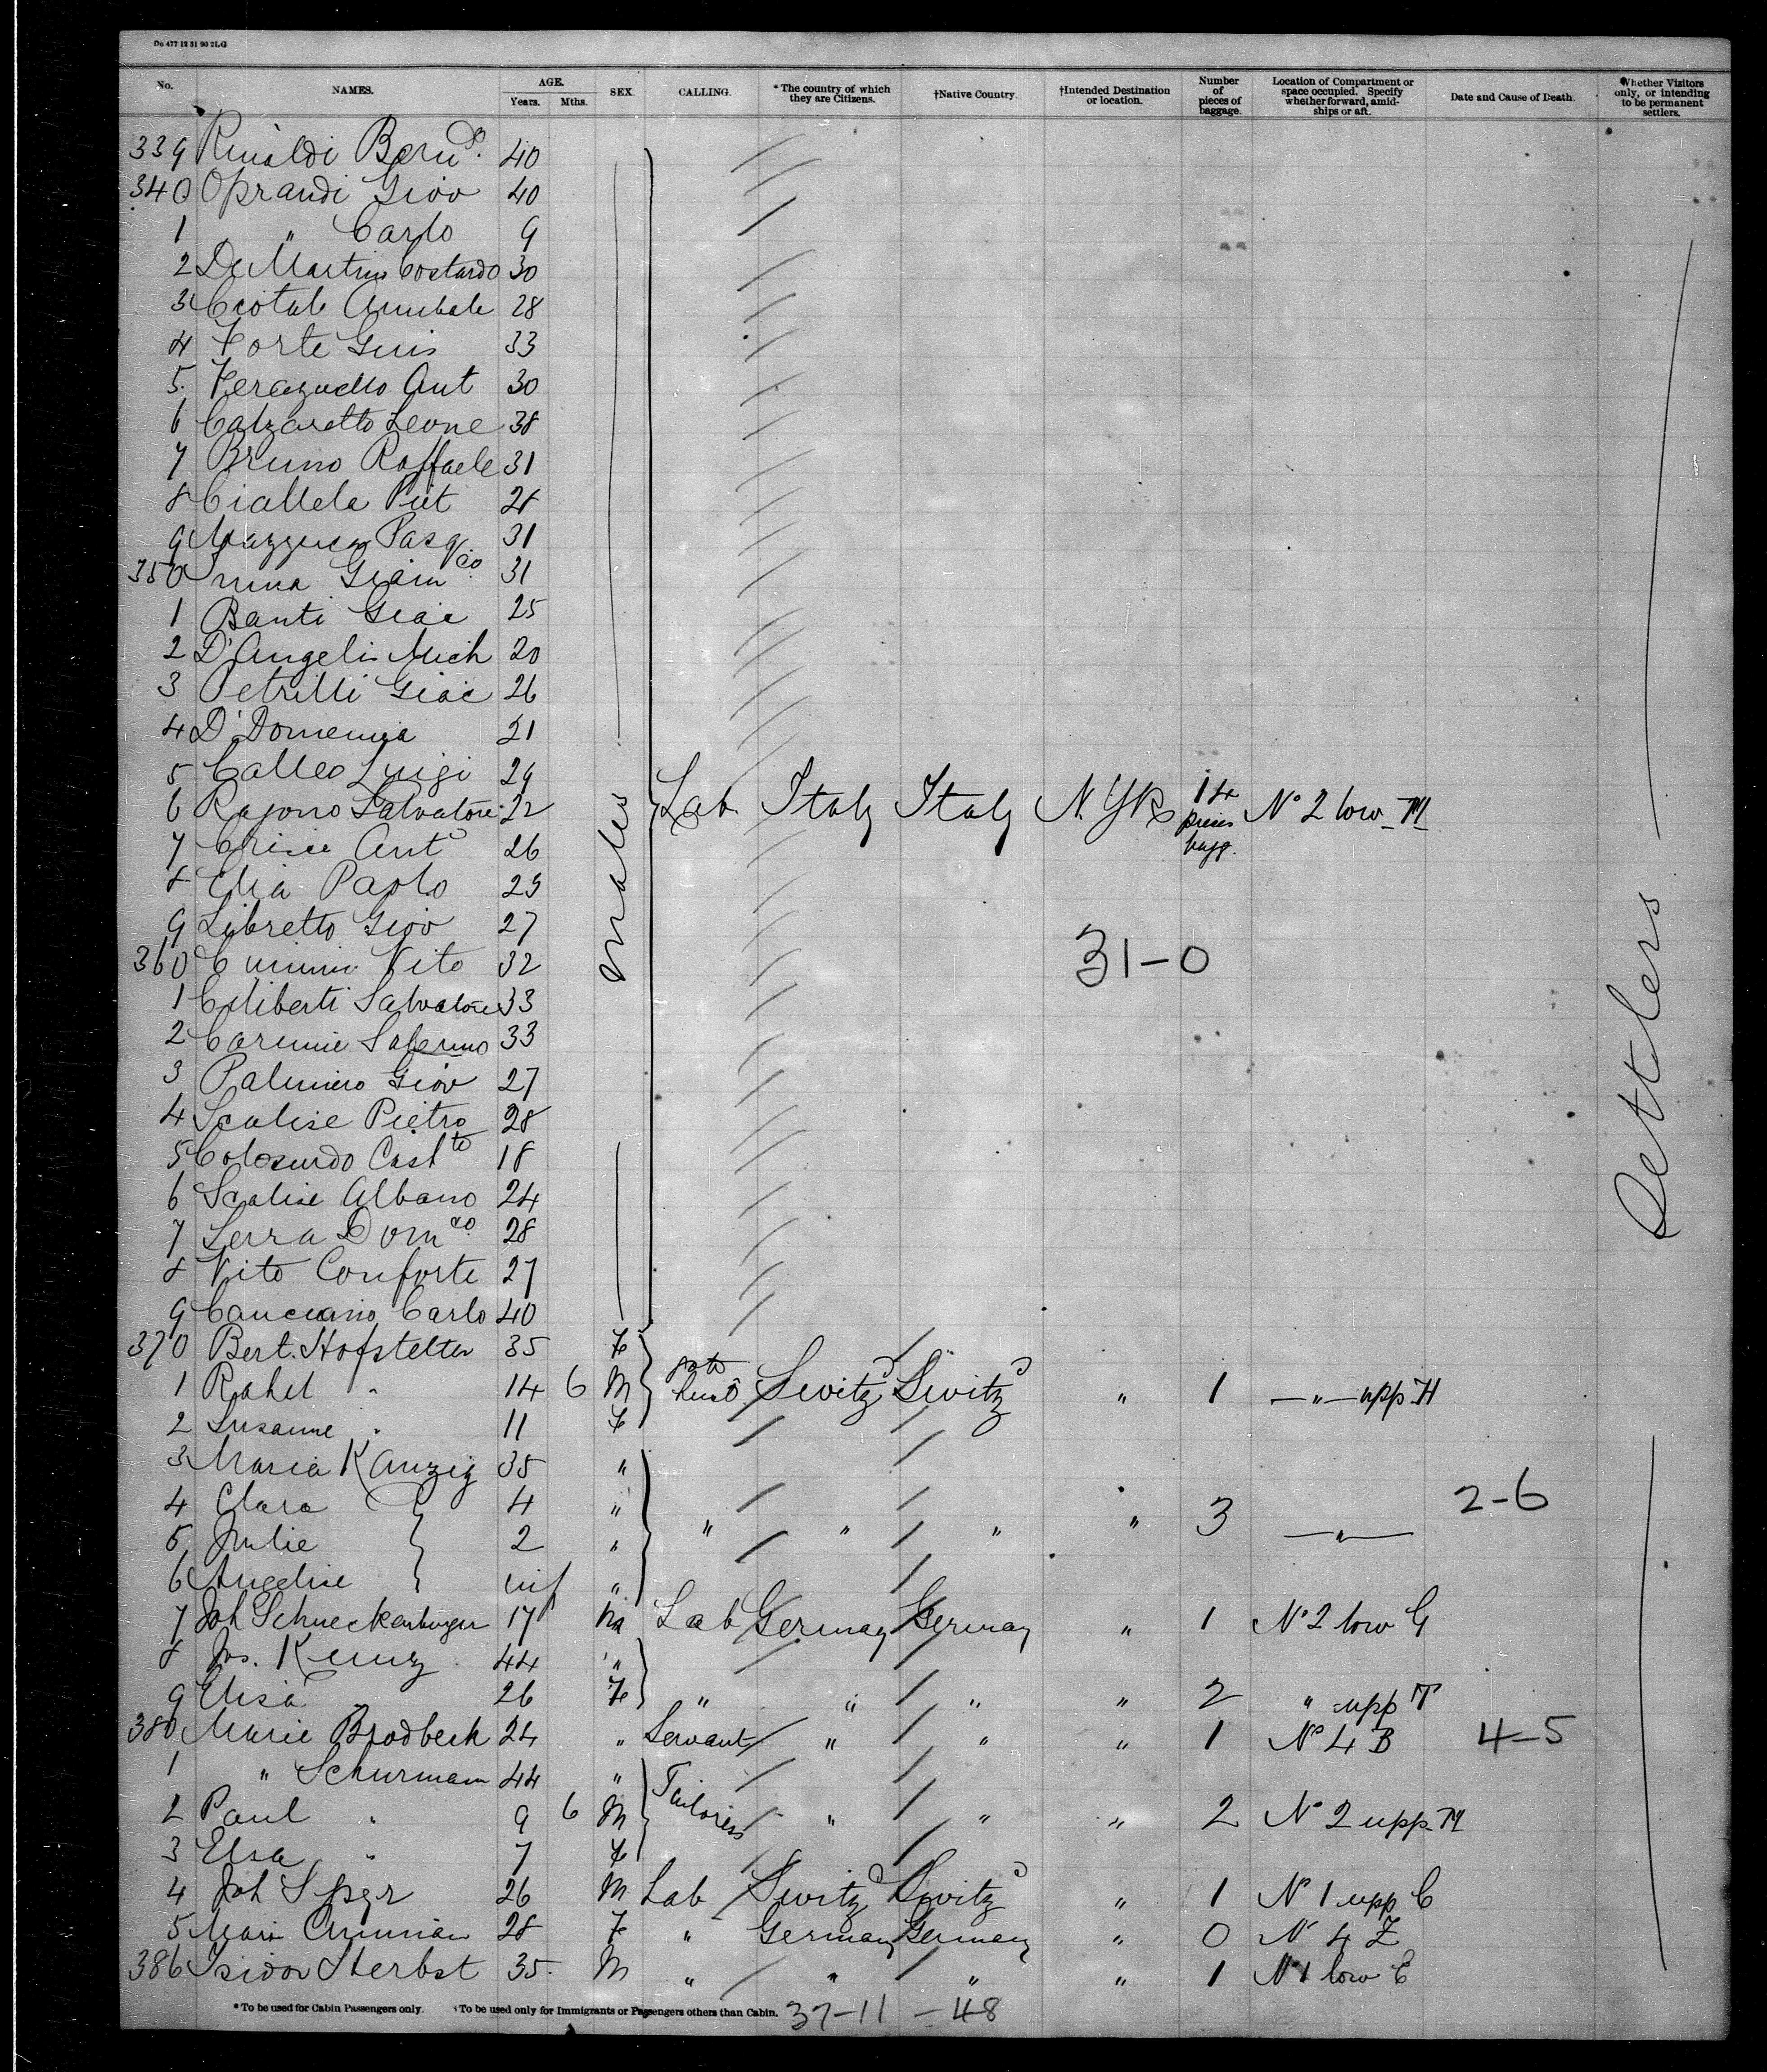 Do 477 12 31 90 2LG
No. NAMES. AGE. Years. Mths. SEX. CALLING. * The country of which they are Citizens. †Native Country. †Intended Destination or location. Number of pieces of baggage. Location of Compartment or space occupied. Specify whether forward, amidships or aft. Date and Cause of Death. Whether Visitors only, or intending to be permanent settlers.
339 Rinaldi Bern do. 40
340 Oprandi Giov 40
1 " Carlo 9
2 De Martin Costardo 30
3 28
4 Forte Gius 33
5 Ant 30
6 Calzaretto Leone 38
7 Bruno Raffaele 31
8 Ciallela Piet 28
9 Pasq 31
350 31
1 Banti Giac 25
2 D'Angelis Mich 20
3 Petrilli Giac 26
4 D'Domenica 21
5 Calleo Luigi 29
6 Rajono Salvatore 22 males Lab Italy Italy N.Yk 14 pieces bagg. No 2 low M
7 Ant o 26
8 Elia Paolo 29
9 Libretto Giov 27
360 Vito 32 31-0
1 Ciliberti Salvatore 33
2 Carmine Salerno 33
3 Palmiero Giov 27
4 Scalise Pietro 28 Settlers
5 Cast to 18
6 Scalise Albano 24
7 Serra Dom co 28
8 Vito Conforte 27
9 Canciano Carlo 40
370 Bert. Hofstetter 35 F
1 Rahel " 14 6 M Switz d Switz d " 1 —"— upp H
2 Susanne " 11 F
3 Maria Kanzig 35 "
4 Clara 4 " 2-6
5 Julie 2 " " " " " 3 —"—
6 Angeline inf "
7 Joh Schneckenburger 17 M Lab Germany Germany " 1 No 2 low G
8 Jos. Kunz 44 "
9 Elisa 26 F " " " " 2 " upp T
380 Marie Brodbeck 24 " Servant " " " 1 No 4 B 4-5
1 " Schurmann 44 "
2 Paul " 9 6 M Tailoress " " " 2 No 2 upp M
3 Elsa " 7 F
4 Joh 26 M Lab Switz d Switz d " 1 No 1 upp C
5 Mari 28 F " Germany Germany " 0 No 4 Z
386 Isidor Herbst 35 M " " " " 1 No 1 low E
* To be used for Cabin Passengers only. †To be used only for Immigrants or Passengers others than Cabin. 37-11 - 48